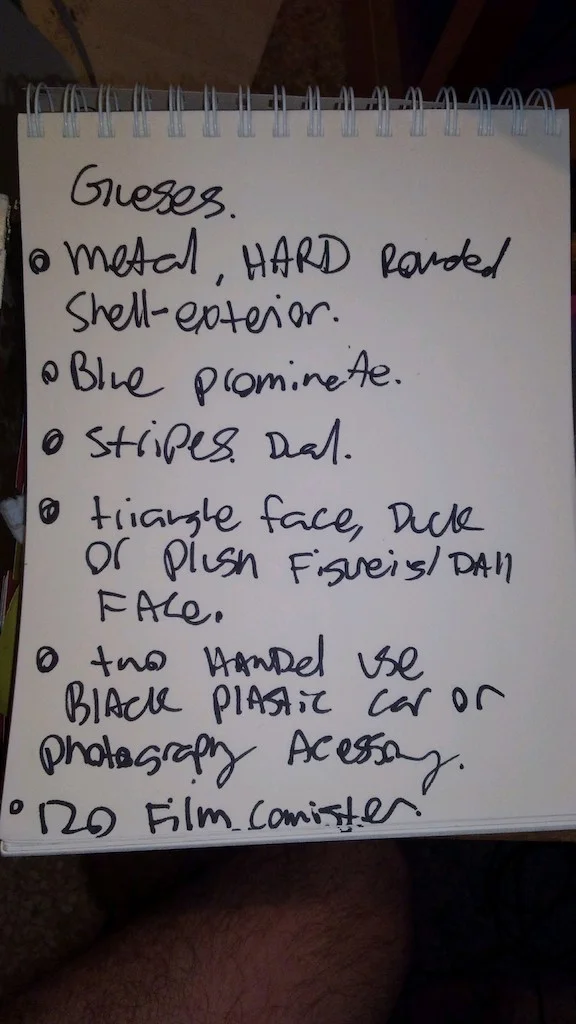 Gueses.
metal, HARD Rounded
Shell-exterior.
Blue prominete.
Stripes. Dual.
triangle face, Duck
or plush Figueirs/DAll
FACe.
two HANDel use
BLACK PLASTIC car or
photography Acessory.
120 Film Comister.